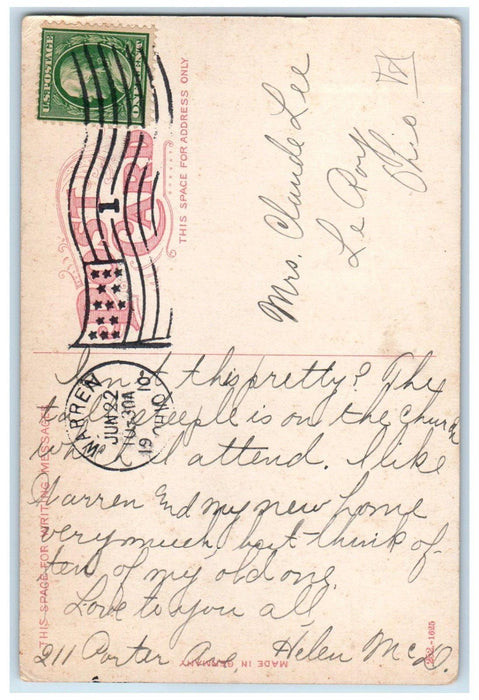 U.S. POSTAGE
ONE CENT
POST CARD
THIS SPACE FOR ADDRESS ONLY
1
WARREN
JUN 22
1030A
1910
OHIO
Mrs. Claude Lee
Le Roy
Ohio
THIS SPACE FOR WRITING MESSAGES
Isn't this pretty? The
tall steeple is on the church
which I attend. I like
Warren and my new home
very much, but think of-
ten of my old one.
Love to you all,
Helen McD.
211 Porter Ave.
MADE IN GERMANY